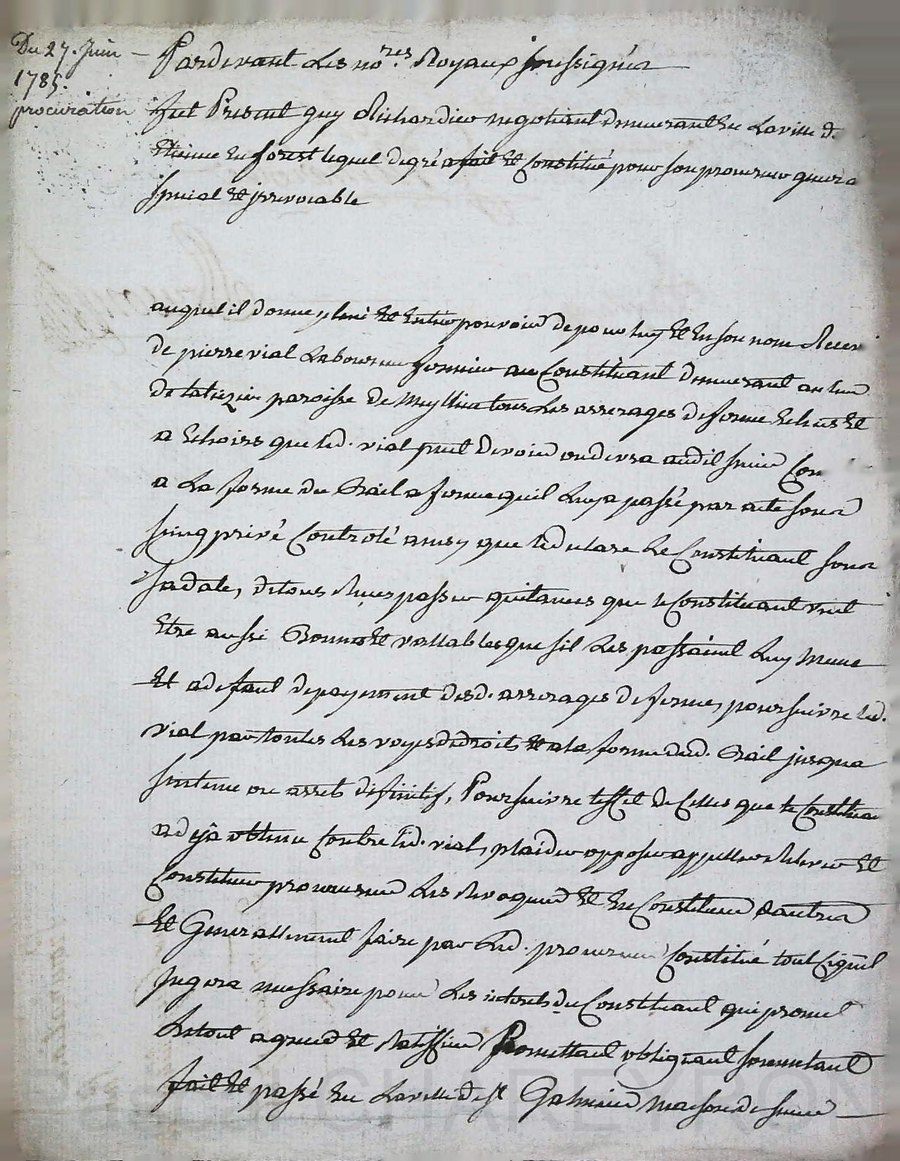 Du 27. Juin
1785.
procuration
Pardevant Les no.res Royaux soussignés
fut Present guy Richardier negotiant demeurant En La ville de
Etienne En forest lequel de gré a fait Et Constitué pour son procureur general
special Et irrevocable
auquel il donne plein Et Entier pouvoir de pour luy Et En son nom Recevoir
de pierre vial Laboureur fermier du Constituant demeurant au lieu
de paroisse de tous Les arrerages de ferme Echus Et
a Echoirs que led. vial peut devoir ou devra audit sieur Con
a La forme du Bail a ferme qu'il Luy a passé par acte sous
seing privé Controlé ainsy que led Le Constituant sous
sa date, de tous Recus passer quitances que le Constituant veut
Etre aussi Bonnes Et vallables que sil Les passoient Luy meme
Et a defaut de payement desd. arrerages de ferme, poursuivre led.
vial par toutes Les voyes de droits Et a la forme dud. Bail jusqua
sentence ou arrets definitif, Poursuivre leffet de Celles que le Constituant
a deja obtenu Contre led. vial, plaider opposer appeller Et
Constituer procureurs Les Revoquer Et En Constituer dautres
Et Generallement faire par Led. procureur Constitué tout Ce quil
jugera necessaire pour Les interets du Constituant qui promet
Le tout agreer Et Ratiffier Promettant obligeant soumettant
fait Et passé En La ville de st Galmier maison de sieur
CHAREYRON